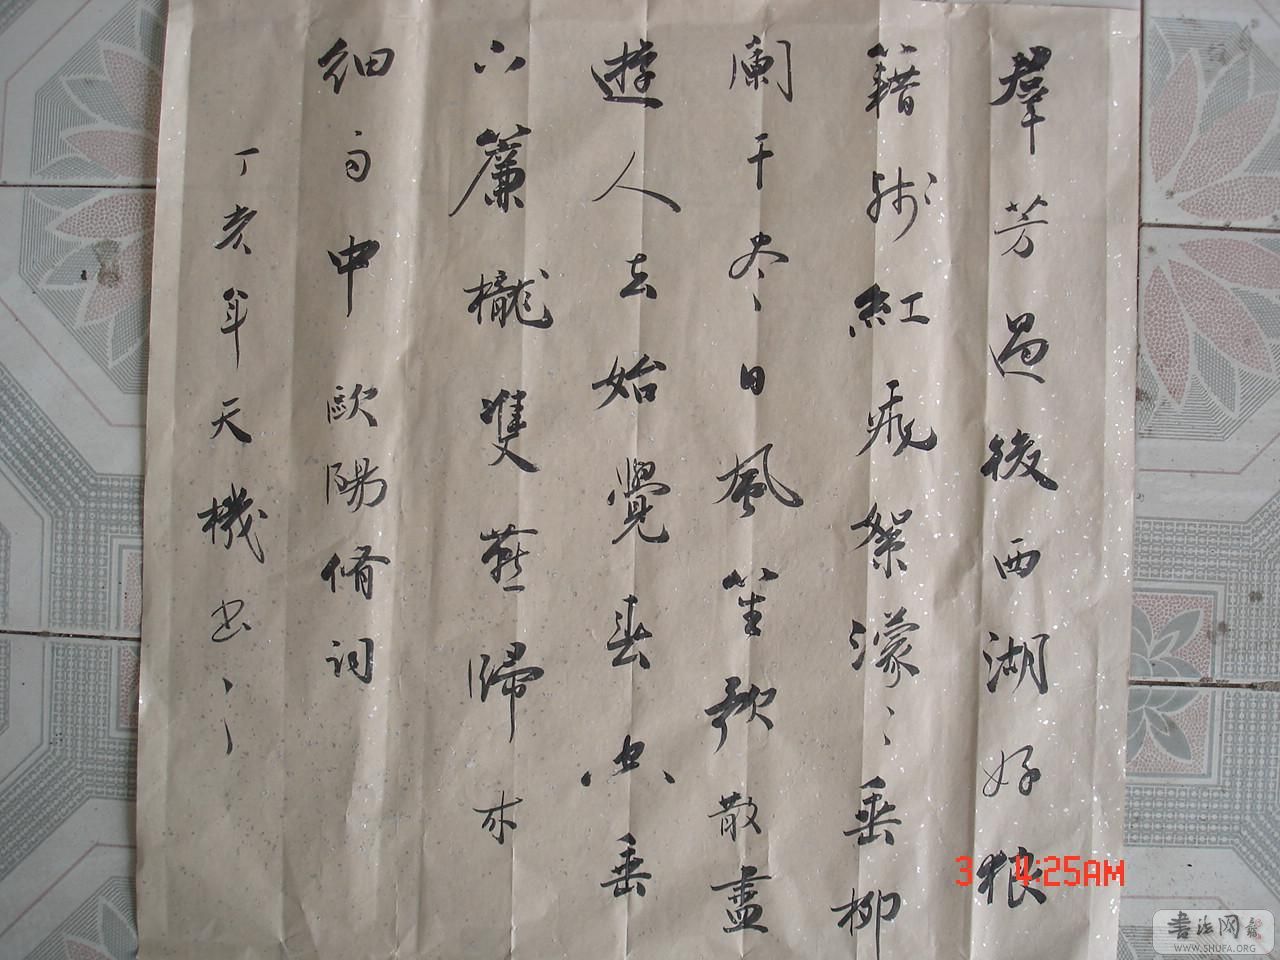 羣芳過後西湖好狼
籍殘紅飛絮濛〻垂柳
闌干尽〻日風笙歌散盡
遊人去始覺春空垂
下簾櫳雙燕歸来
細雨中歐陽脩詞
丁亥年天機书
3 4:25AM
书法网
WWW.SHUFA.ORG